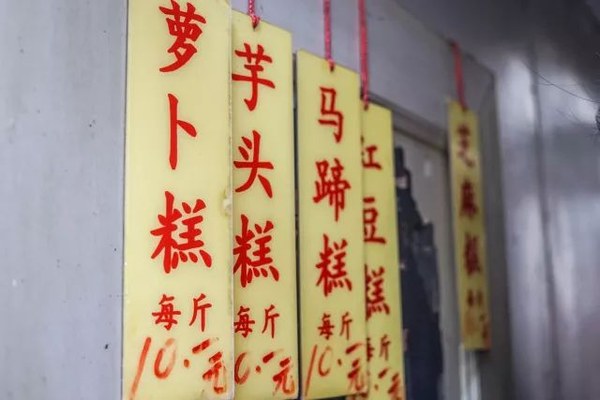 萝卜糕
每斤
10.一元
芋头糕
每斤
0.一元
马蹄糕
每斤
10.一元
红豆糕
每斤
元
芝麻糕